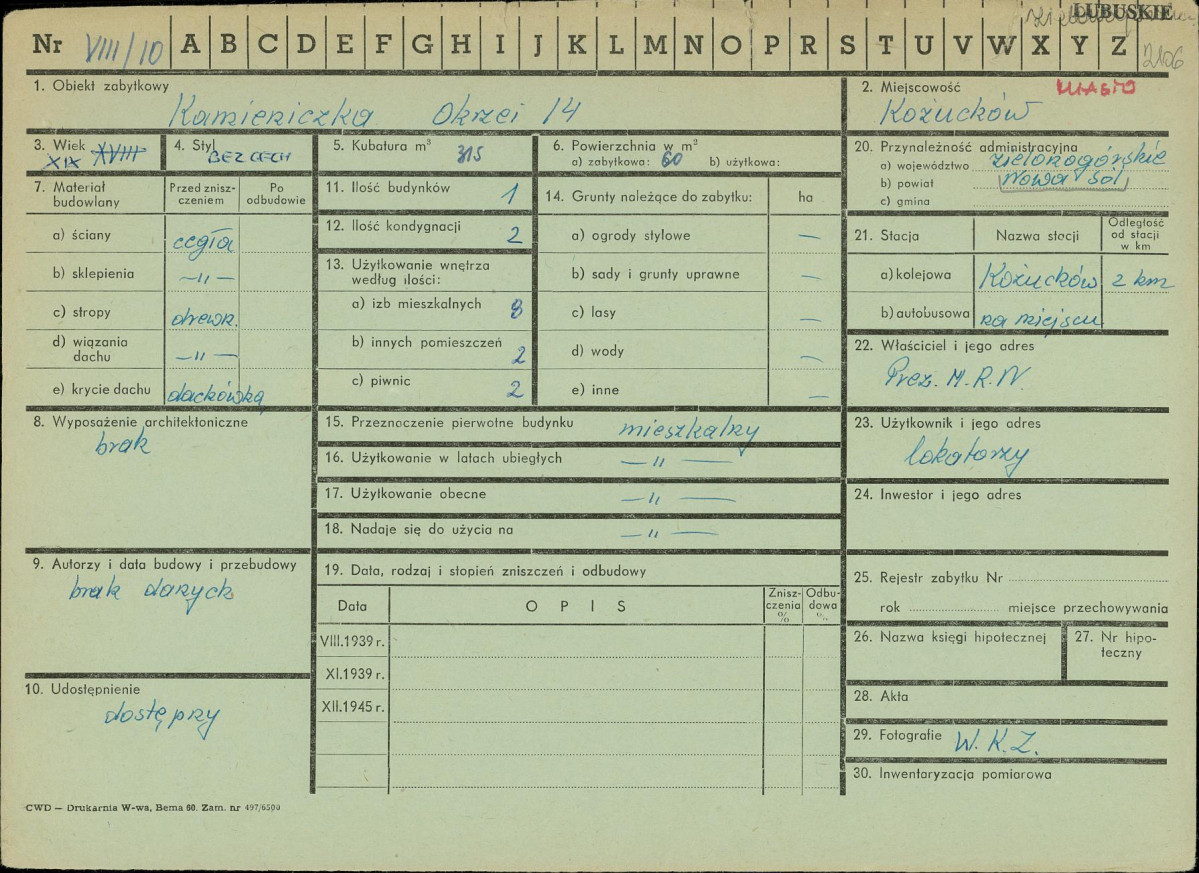 LUBUSKIE
Nr VIII/10 A B C D E F G H I J K L M N O P R S T U V W X Y Z
2106
1. Obiekt zabytkowy
Kamieniczka Okrzei 14
2. Miejscowość MIASTO
Kożuchów
3. Wiek XVIII
XIX
4. Styl
BEZ CECH
5. Kubatura m³ 315
6. Powierzchnia w m²
a) zabytkowa: 60 b) użytkowa:
20. Przynależność administracyjna
a) województwo zielonogórskie
b) powiat Nowa Sól
c) gmina
7. Materiał budowlany
Przed zniszczeniem
Po odbudowie
a) ściany cegła
b) sklepienia —〃—
c) stropy drewn.
d) wiązania dachu —〃—
e) krycie dachu dachówką
11. Ilość budynków 1
12. Ilość kondygnacji 2
13. Użytkowanie wnętrza
według ilości:
a) izb mieszkalnych 8
b) innych pomieszczeń 2
c) piwnic 2
14. Grunty należące do zabytku: ha
a) ogrody stylowe —
b) sady i grunty uprawne —
c) lasy —
d) wody —
e) inne —
21. Stacja Nazwa stacji Odległość od stacji w km
a) kolejowa Kożuchów 2 km
b) autobusowa na miejscu
22. Właściciel i jego adres
Prez. M.R.N.
8. Wyposażenie architektoniczne
brak
15. Przeznaczenie pierwotne budynku mieszkalny
16. Użytkowanie w latach ubiegłych —〃—
17. Użytkowanie obecne —〃—
18. Nadaje się do użycia na —〃—
23. Użytkownik i jego adres
lokatorzy
24. Inwestor i jego adres
9. Autorzy i data budowy i przebudowy
brak danych
19. Data, rodzaj i stopień zniszczeń i odbudowy
Data OPIS Zniszczenia % Odbudowa %
VIII.1939 r.
XI.1939 r.
XII.1945 r.
25. Rejestr zabytku Nr
rok miejsce przechowywania
26. Nazwa księgi hipotecznej
27. Nr hipoteczny
10. Udostępnienie
dostępny
28. Akta
29. Fotografie W.K.Z.
30. Inwentaryzacja pomiarowa
CWD — Drukarnia W-wa, Bema 60. Zam. nr 497/6500